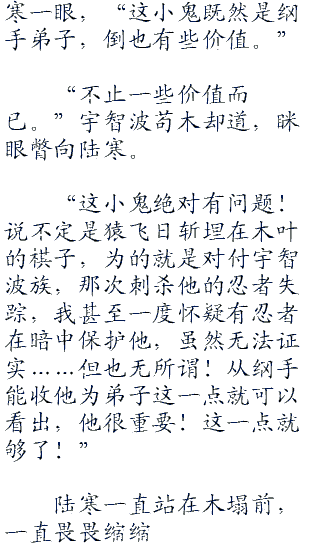 寒一眼，“这小鬼既然是纲
手弟子，倒也有些价值。”
“不止一些价值而
已。”宇智波苟木却道，眯
眼瞥向陆寒。
“这小鬼绝对有问题！
说不定是猿飞日斩埋在木叶
的棋子，为的就是对付宇智
波族，那次刺杀他的忍者失
踪，我甚至一度怀疑有忍者
在暗中保护他，虽然无法证
实……但也无所谓！从纲手
能收他为弟子这一点就可以
看出，他很重要！这一点就
够了！”
陆寒一直站在木塌前，
一直畏畏缩缩